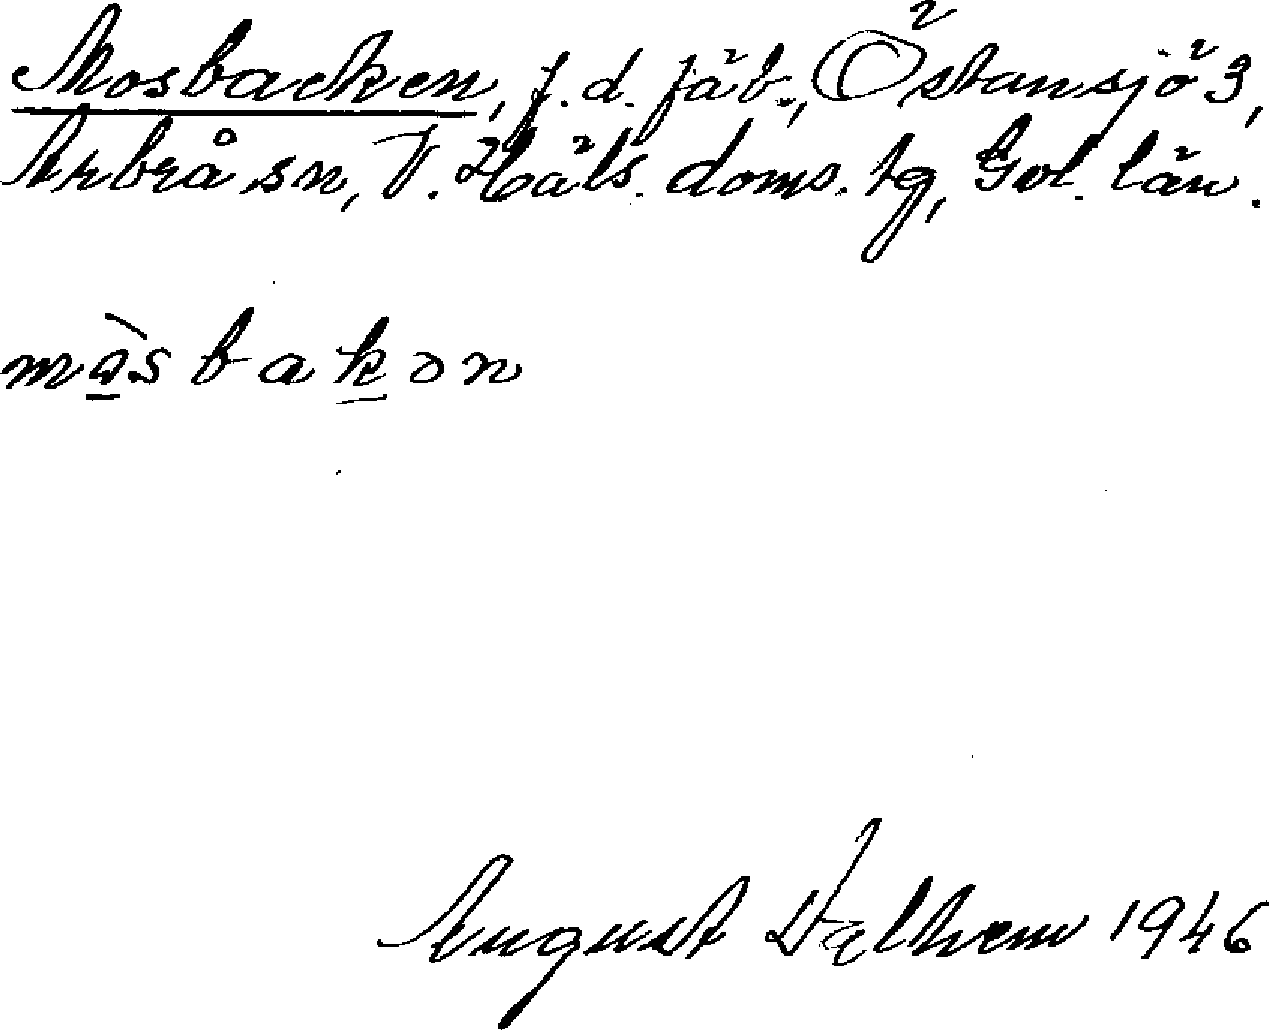 Mosbacken, f.d. fäb., Östansjö 3,
Arbrå sn, V. Häls. doms. tg, Gvl. län.
må̀sbakɔn
August Dalhem 1946